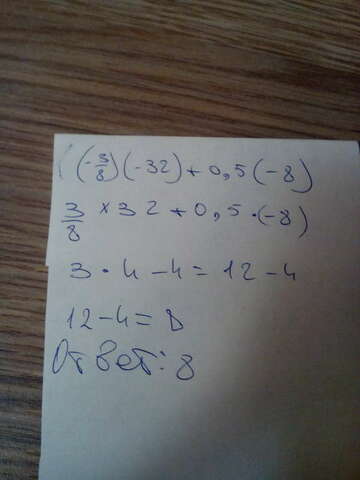 ((-3/8)(-32)+0,5(-8)
3/8 × 32+0,5·(-8)
3·4-4=12-4
12-4=8
Ответ: 8